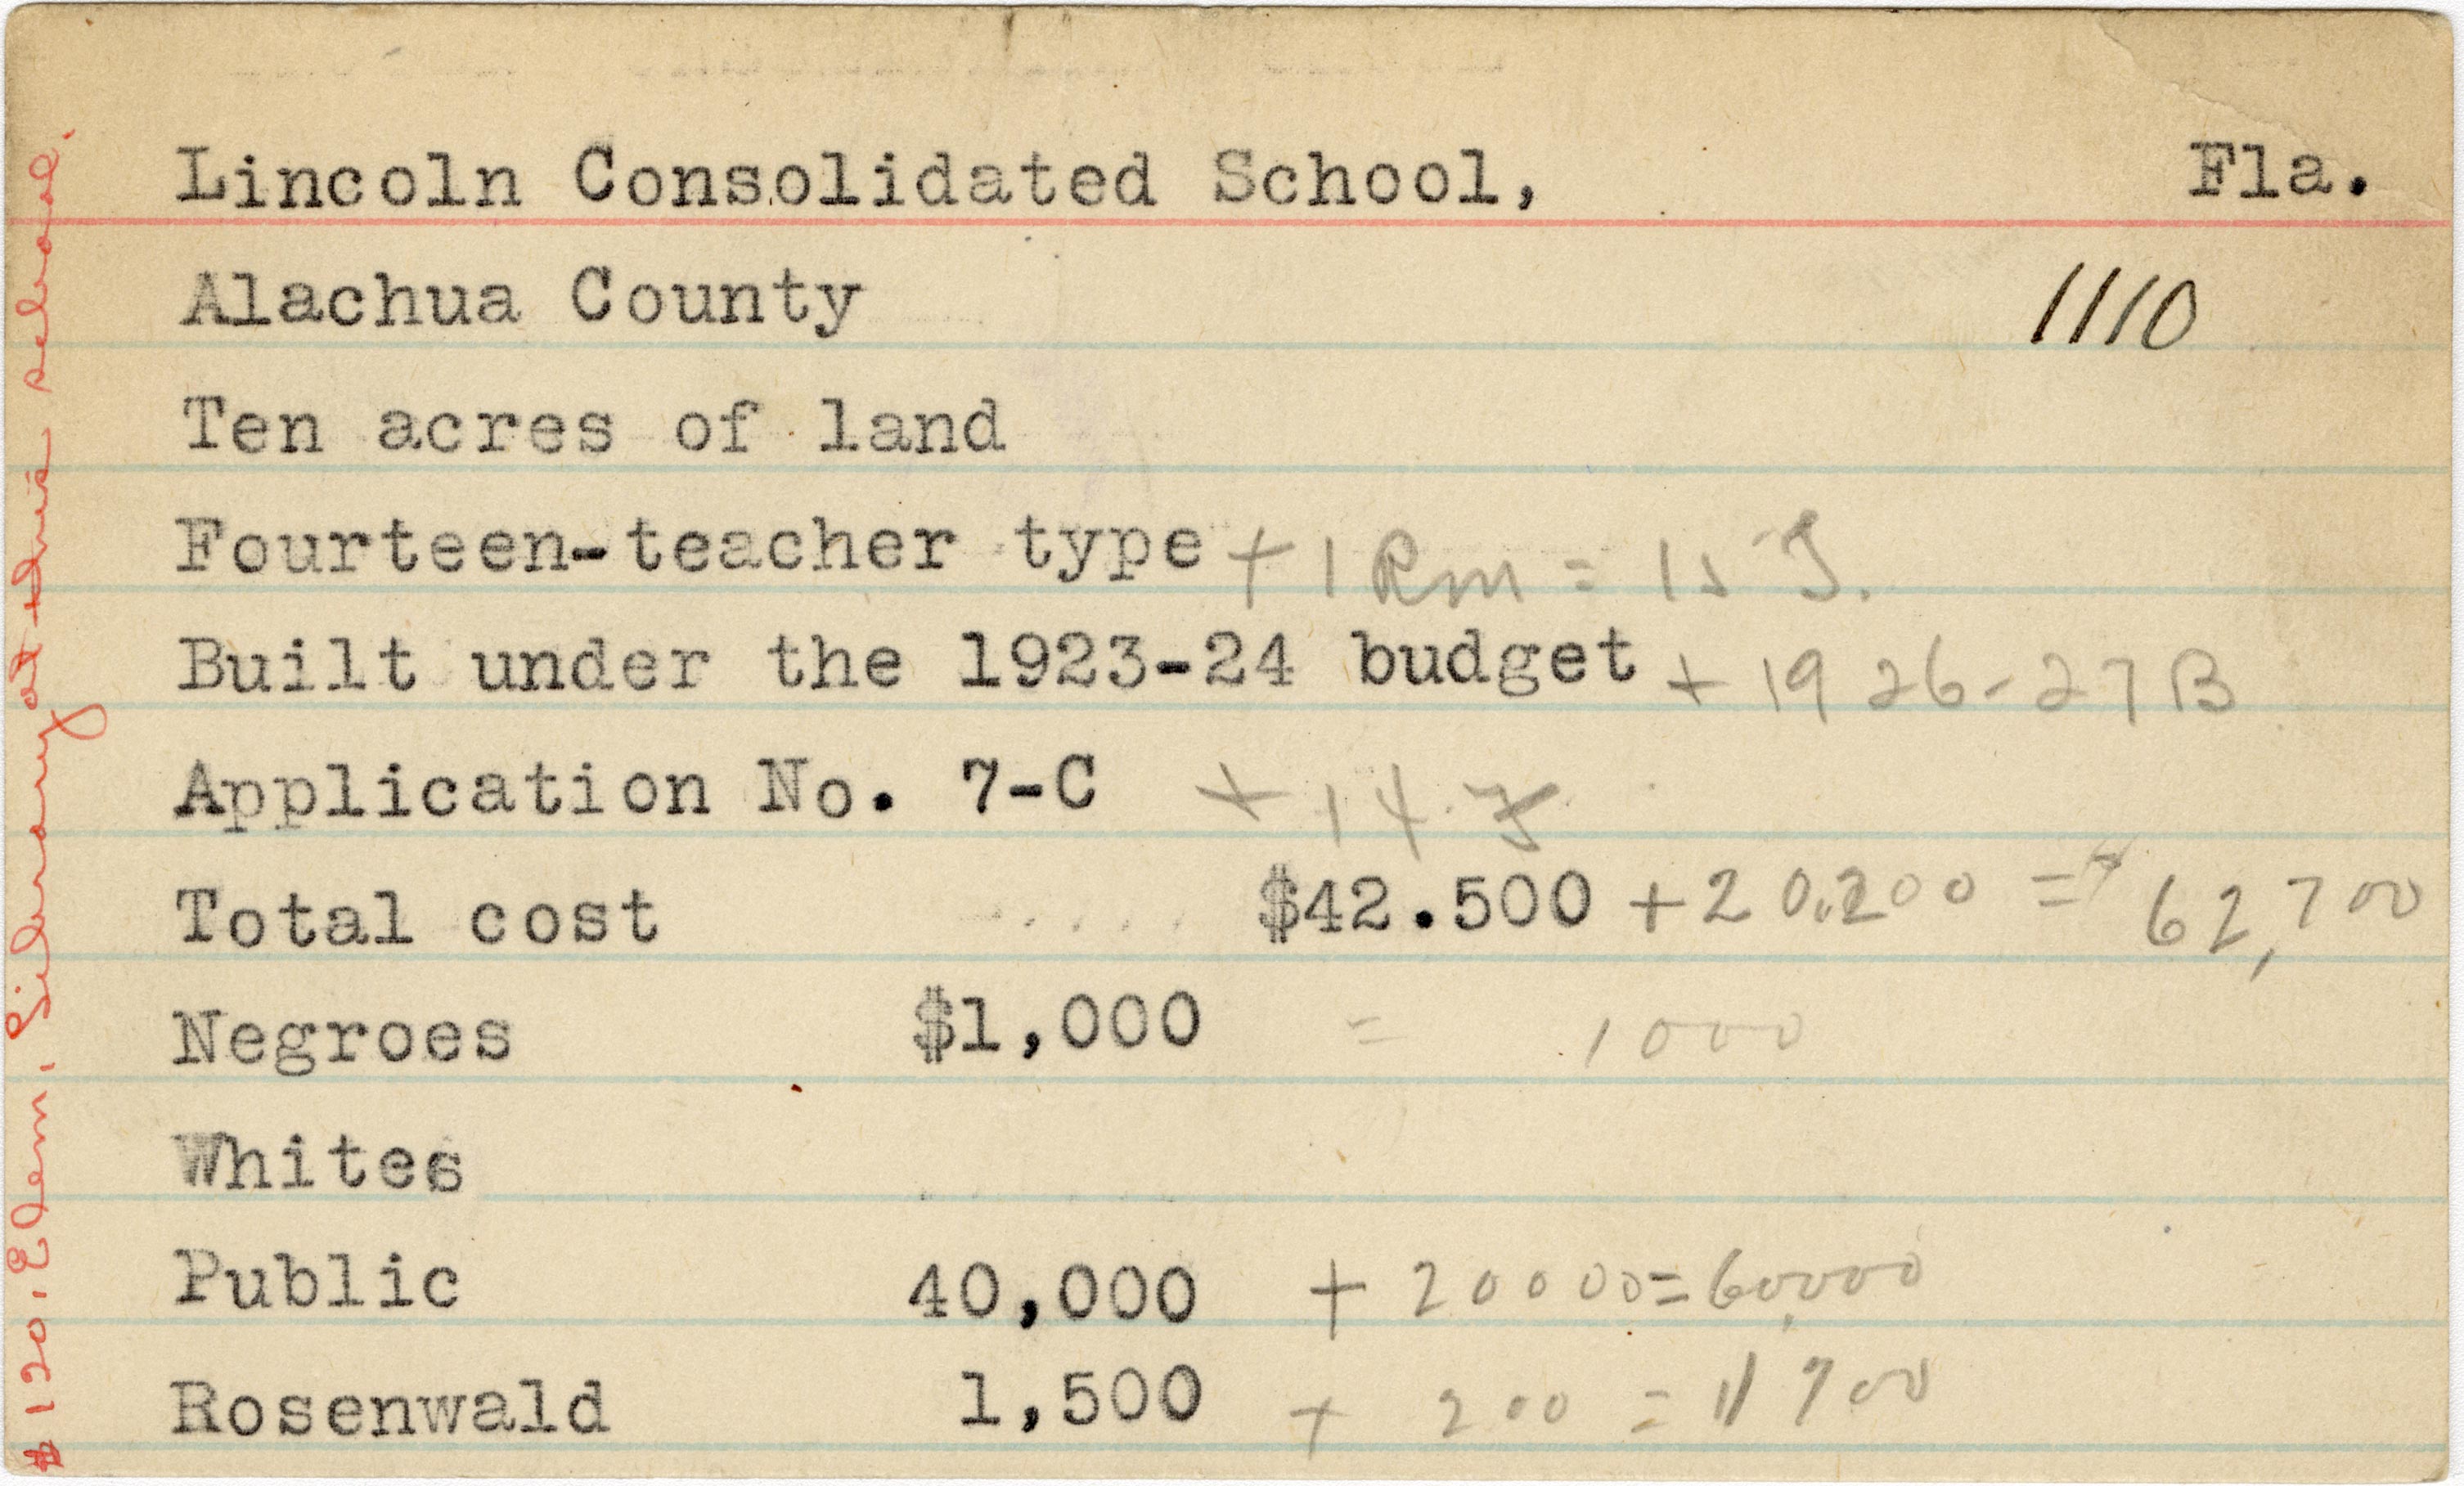 Lincoln Consolidated School, Fla.
Alachua County 1110
Ten acres of land
Fourteen-teacher type + 1 Rm = 15 T.
Built under the 1923-24 budget + 1926-27 B
Application No. 7-C + 14
Total cost $42.500 + 20,200 = $62,700
Negroes $1,000 = 1000
Whites
Public 40,000 + 20000 = 60,000
Rosenwald 1,500 + 200 = 1,700
$120. Elem. Library at this school.